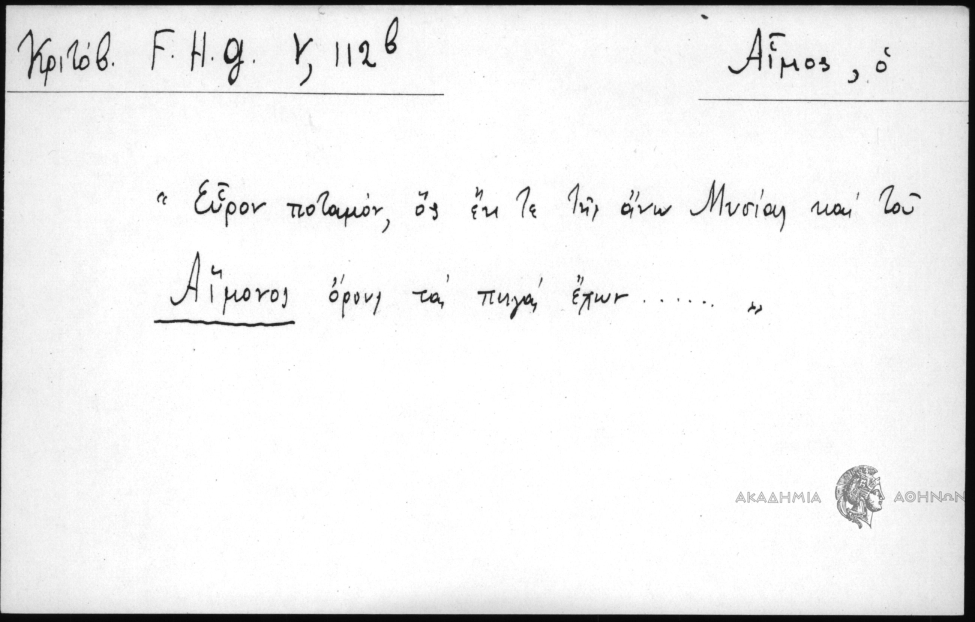 Κριτόβ. F. H. g. γ, 112β
Αἷμος, ὁ
" Εὗρον ποταμόν, ὃς ἔκ τε τῆς ἄνω Μυσίας καὶ τοῦ
Αἵμονος ὄρους τὰς πηγὰς ἔχων ...... "
ΑΚΑΔΗΜΙΑ ΑΘΗΝΩΝ